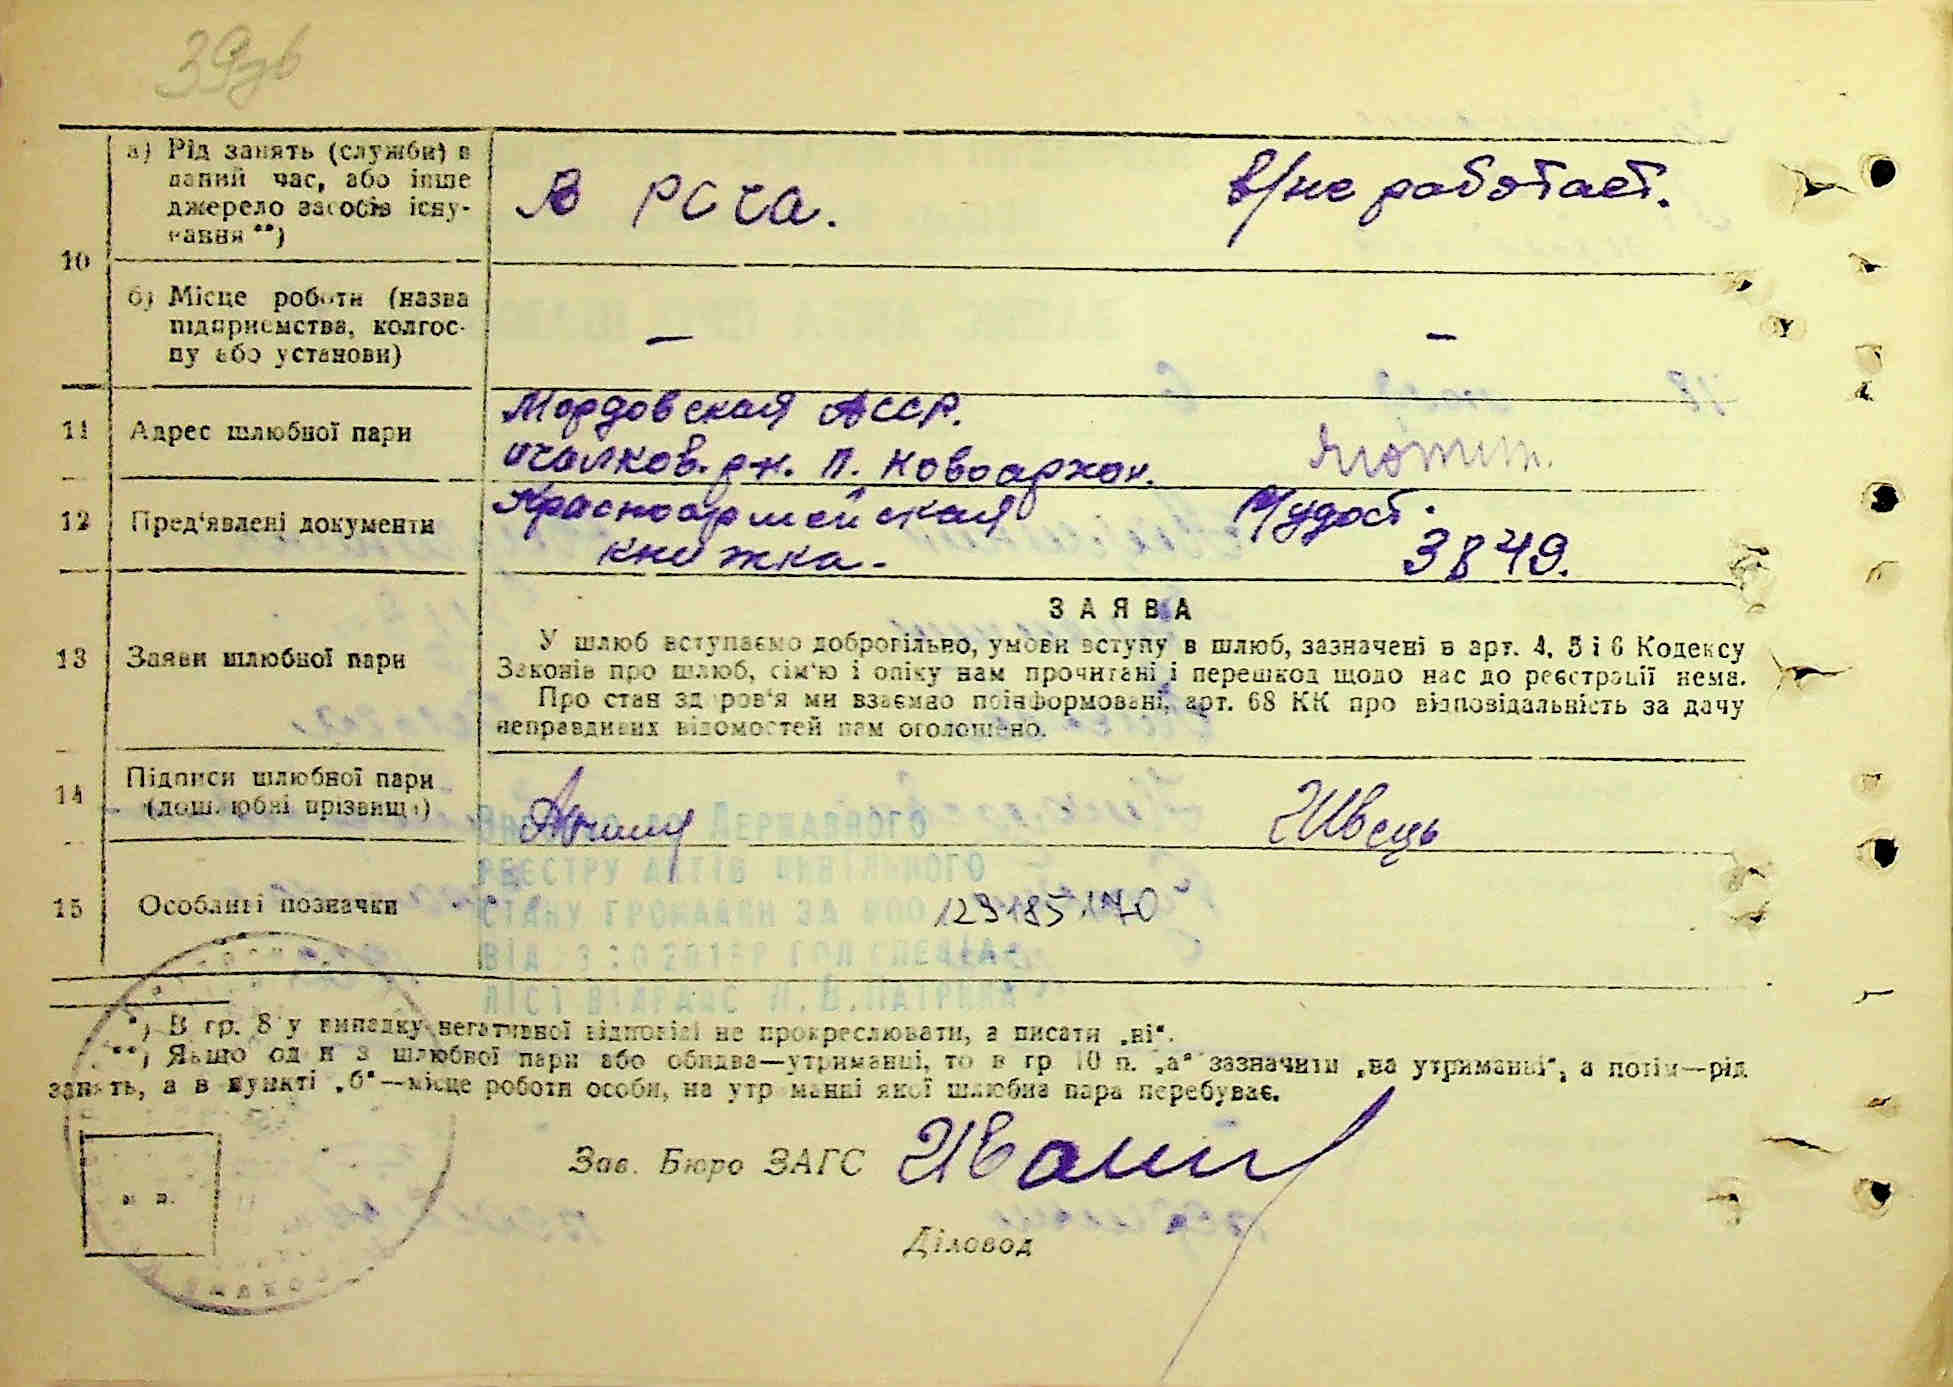 39зв
10
а) Рід занять (служби) в
даний час, або інше
джерело засобів існу-
вання **)
В РСЧА.
в/не работает.
б) Місце роботи (назва
підприємства, колгос-
пу або установи)
—
—
11
Адрес шлюбної пари
Мордовская АССР.
ичалков. рн. п.
12
Пред'явлені документи
Красноармейская
книжка.
удост.
3849.
13
Заяви шлюбної пари
ЗАЯВА
У шлюб вступаємо добровільно, умови вступу в шлюб, зазначені в арт. 4, 5 і 6 Кодексу
Законів про шлюб, сім'ю і опіку нам прочитані і перешкод щодо нас до реєстрації нема.
Про стан здоров'я ми взаємно поінформовані, арт. 68 КК про відповідальність за дачу
неправдивих відомостей нам оголошено.
14
Підписи шлюбної пари
(дошлюбні прізвища)
Швець
15
Особливі позначки
Внесено до Державного
реєстру актів цивільного
стану громадян за
129185170
від
*) В гр. 8 у випадку негативної відповіді не прокреслювати, а писати „ні“.
**) Якщо один з шлюбної пари або обидва—утриманці, то в гр 10 п. „а“ зазначити „на утриманні“, а потім—рід
занять, а в пункті „б“—місце роботи особи, на утриманні якої шлюбна пара перебуває.
м. п.
Зав. Бюро ЗАГС
Діловод